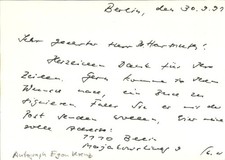 Berlin, den 30.9.91
Sehr geehrter Herr
Herzlichen Dank für Ihre
Zeilen. Gern komme ich dem
Wunsch nach, ein Buch zu
signieren. Falls Sie es mir der
Post senden wollen, hier meine
volle Adresse:
1110 Berlin
Majakowskiring
Autograph Egon Krenz